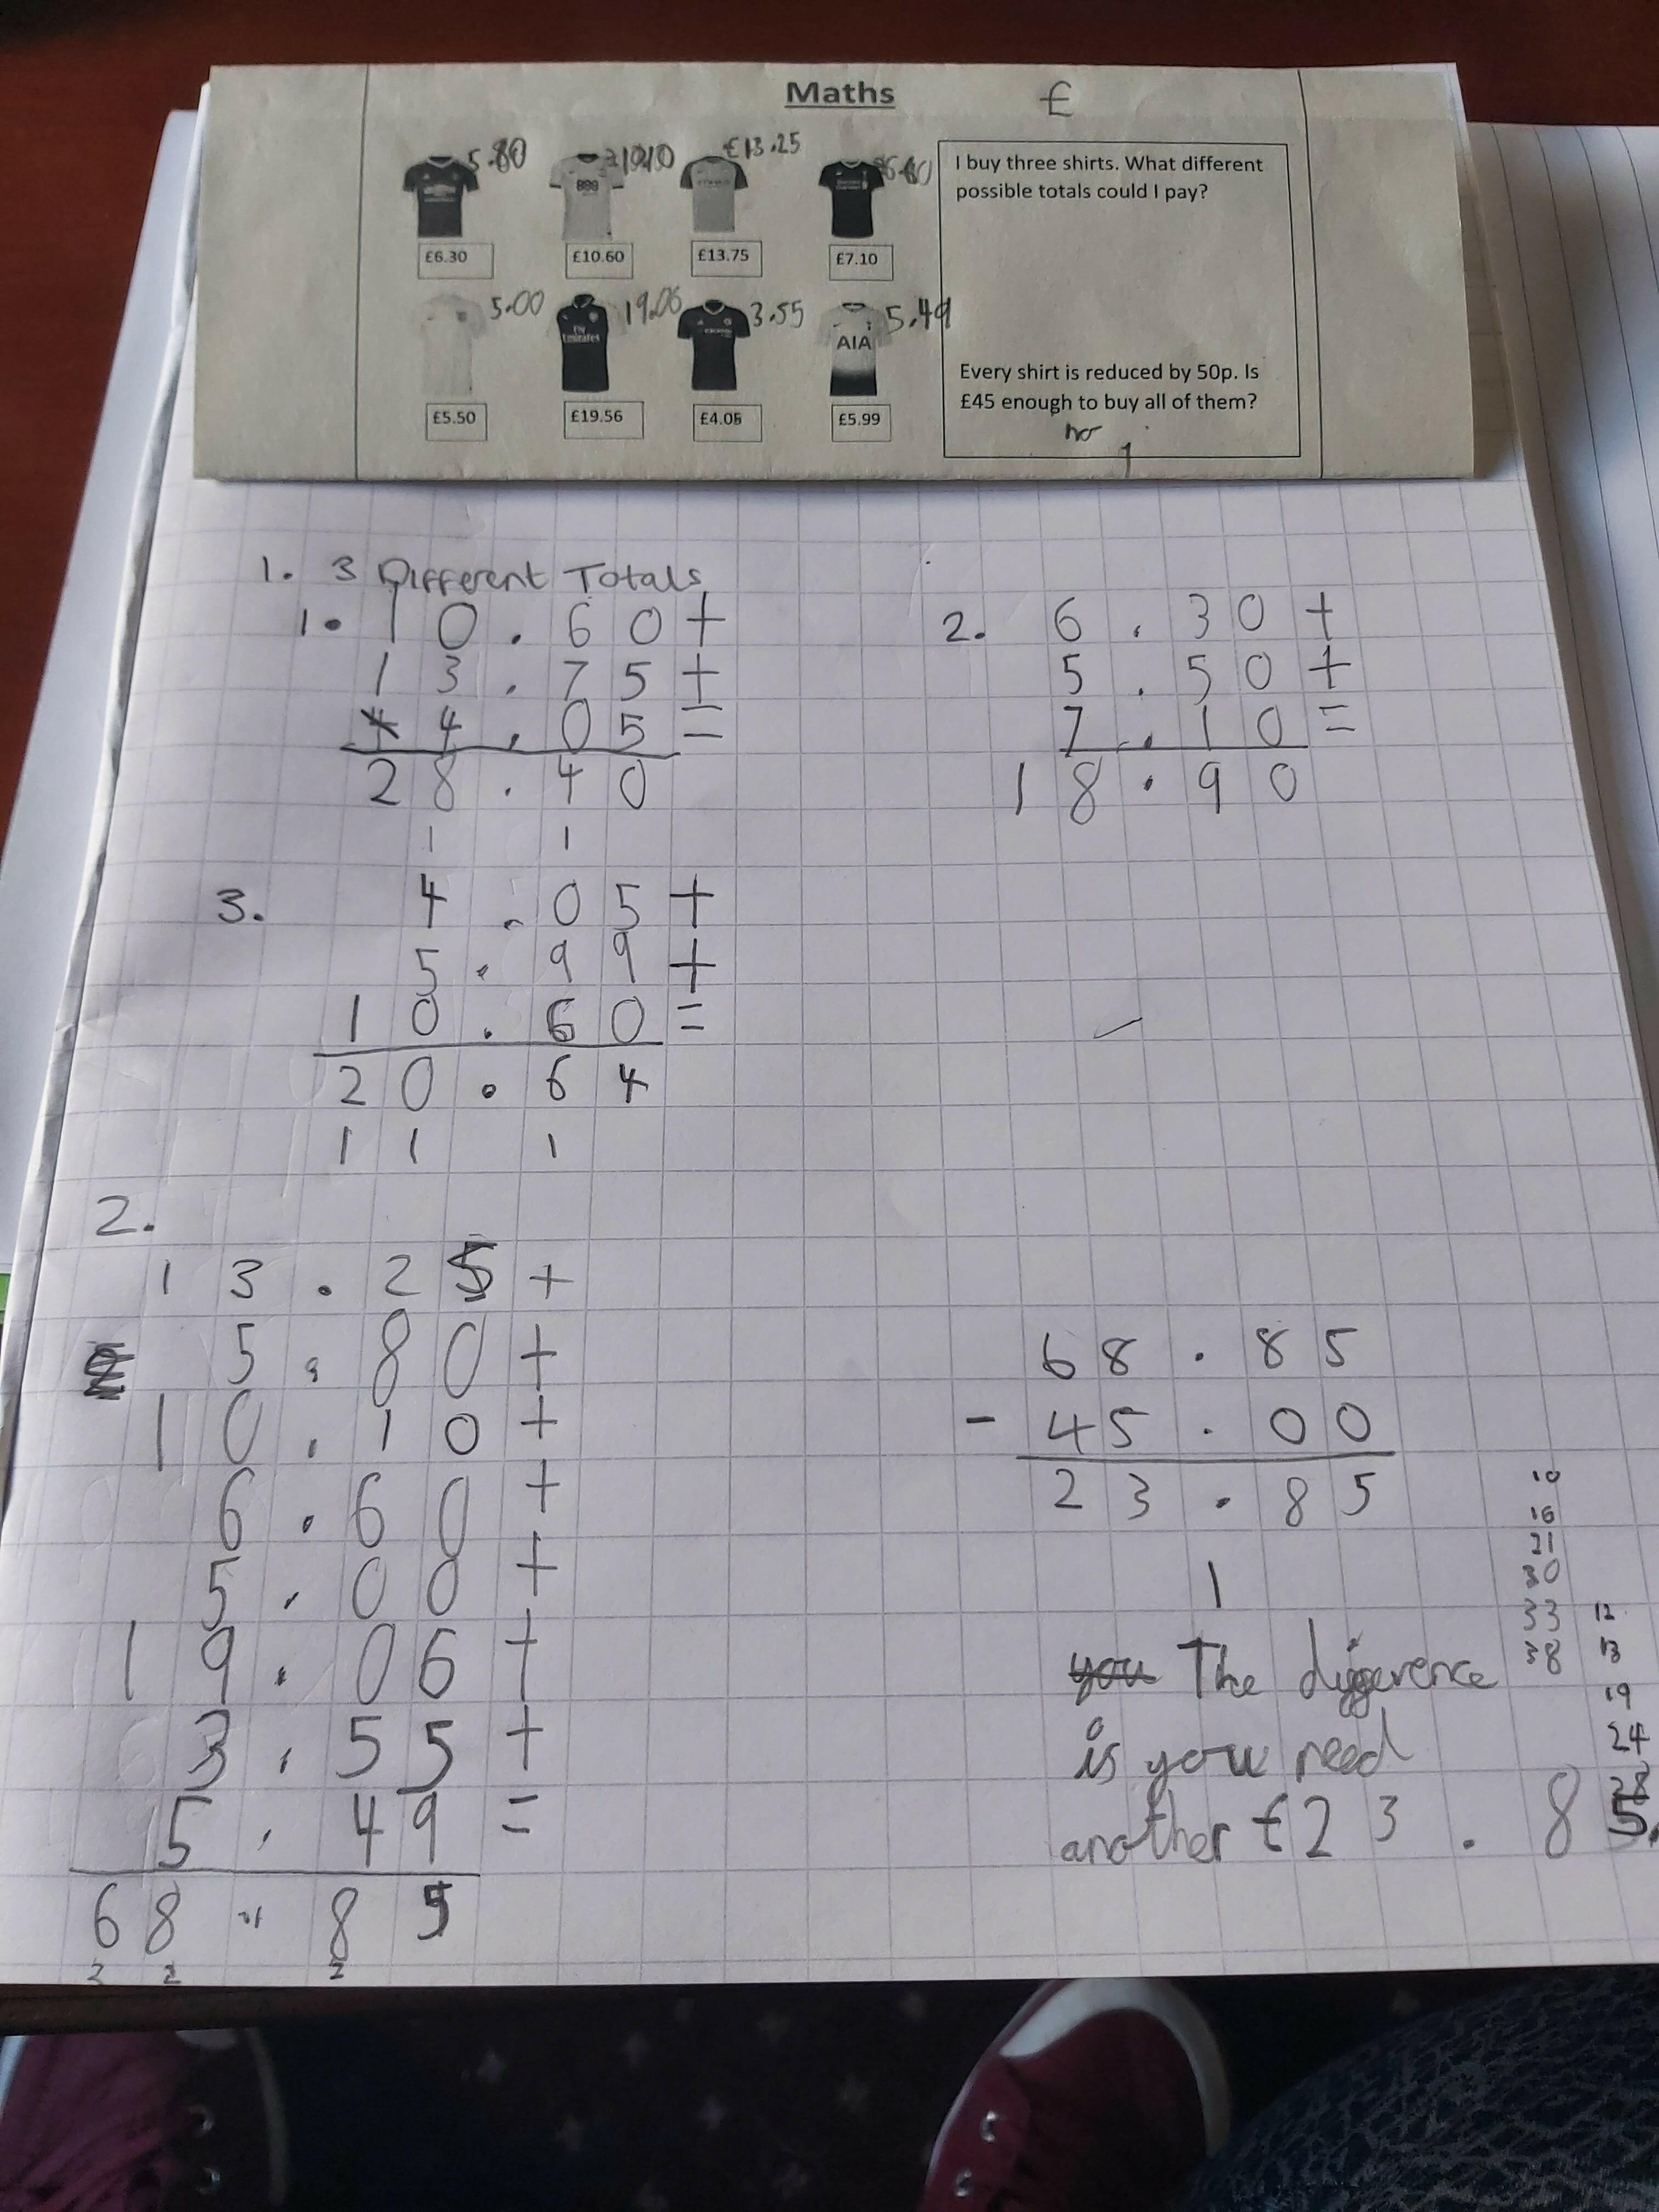 Maths
£
5.80
10.10
£13.25
6.60
£6.30
£10.60
£13.75
£7.10
5.00
19.06
3.55
5.49
Fly
Emirates
AIA
£5.50
£19.56
£4.05
£5.99
I buy three shirts. What different
possible totals could I pay?
Every shirt is reduced by 50p. Is
£45 enough to buy all of them?
no
1. 3 Different Totals
1. 10.60+
13.75+
4.05=
28.40
1 1
2. 6.30+
5.50+
7.10=
18.90
3. 4.05+
5.99+
10.60=
20.64
1 1 1
2.
13.25+
5.80+
10.10+
6.60+
5.00+
19.06+
3.55+
5.49=
68.85
2 2 2
68.85
- 45.00
23.85
1
you The difference
is you need
another £23.85.
10
16
21
30
33
38
12
13
19
24
28